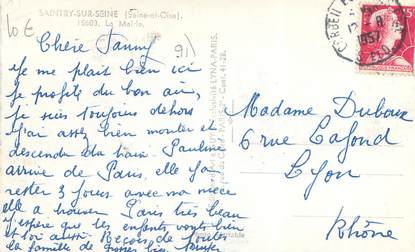 10€
SAINTRY-SUR-SEINE (Seine-et-Oise).
15603. La Mairie.
91)
Chère Fanny
je me plait bien ici
je profite du bon air,
je suis toujours dehors
j'ai assez bien monter et
descendu du train Pauline
arrive de Paris. elle va
rester 3 jours avec ma nièce
elle a trouver Paris très beau
j'espère que les enfants vont bien
et toi aussi. Reçois de toutes
la famille de bien
CORBEIL
8
1957
15F
Madame Duboux
6 rue Lafond
Lyon
Rhône